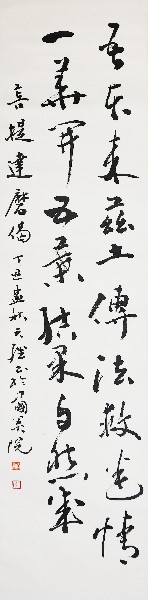 吾本來茲土傳法救迷情
一華開五葉結果自然成
菩提達磨偈丁丑孟秋天猛書於中國美院